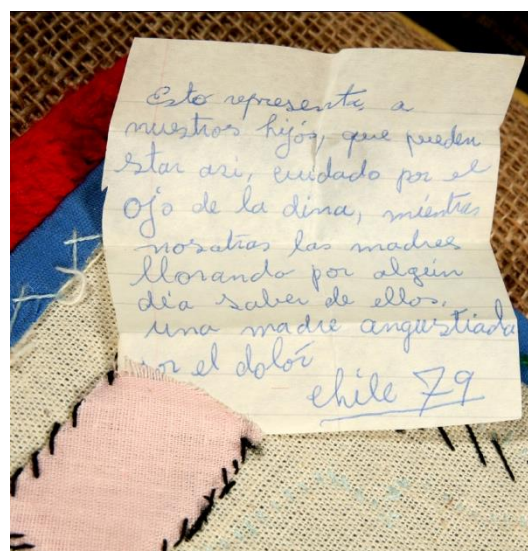 Esto representa a
nuestros hijos, que pueden
estar asi, cuidado por el
Ojo de la dina, mientras
nosotras las madres
llorando por algún
día saber de ellos.
Una madre angustiada
por el dolor
chile 79